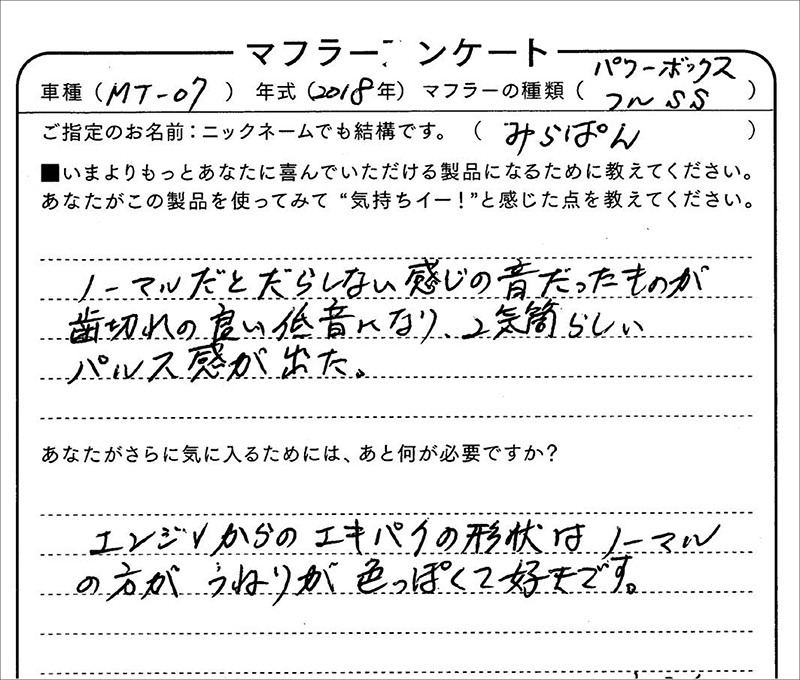 マフラー ンケート
車種（MT-07）年式（2018年）マフラーの種類（パワーボックス フルSS）
ご指定のお名前：ニックネームでも結構です。（みらぽん）
■いまよりもっとあなたに喜んでいただける製品になるために教えてください。
あなたがこの製品を使ってみて“気持ちイー！”と感じた点を教えてください。
ノーマルだとだらしない感じの音だったものが
歯切れの良い低音になり、2気筒らしい
パルス感が出た。
あなたがさらに気に入るためには、あと何が必要ですか？
エンジンからのエキパイの形状はノーマル
の方がうねりが色っぽくて好きです。